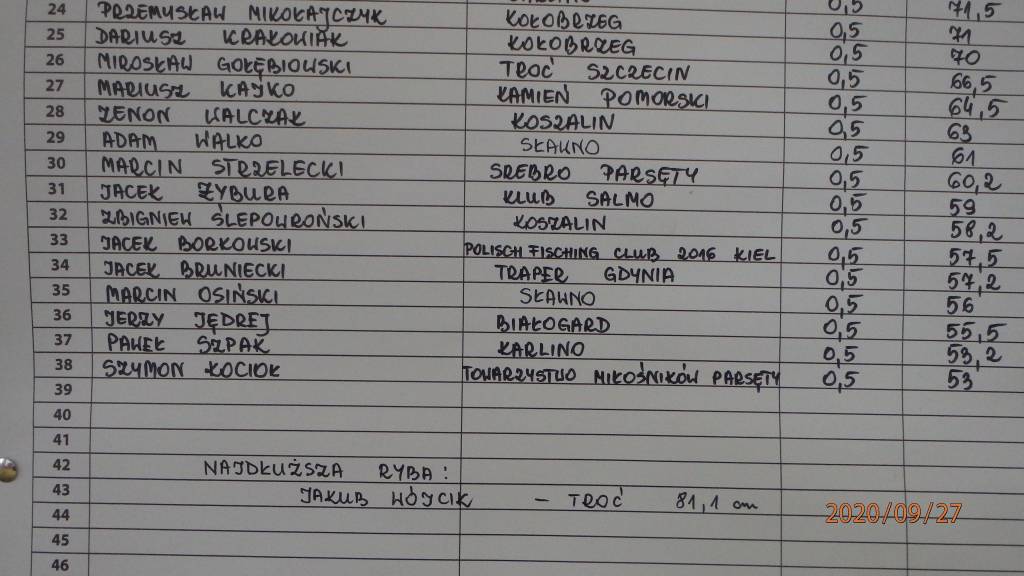 0,5 71,5
24 PRZEMYSŁAW MIKOŁAJCZYK KOŁOBRZEG 0,5 71
25 DARIUSZ KRAKOWIAK KOŁOBRZEG 0,5 70
26 MIROSŁAW GOŁĘBIOWSKI TROĆ SZCZECIN 0,5 66,5
27 MARIUSZ KAJKO KAMIEŃ POMORSKI 0,5 64,5
28 ZENON WALCZAK KOSZALIN 0,5 63
29 ADAM WALKO SŁAWNO 0,5 61
30 MARCIN STRZELECKI SREBRO PARSĘTY 0,5 60,2
31 JACEK ZYBURA KLUB SALMO 0,5 59
32 ZBIGNIEW ŚLEPOWROŃSKI KOSZALIN 0,5 58,2
33 JACEK BORKOWSKI POLISCH FISCHING CLUB 2016 KIEL 0,5 57,5
34 JACEK BRUNIECKI TRAPER GDYNIA 0,5 57,2
35 MARCIN OSIŃSKI SŁAWNO 0,5 56
36 JERZY JĘDREJ BIAŁOGARD 0,5 55,5
37 PAWEŁ SZPAK KARLINO 0,5 53,2
38 SZYMON KOCIOŁ TOWARZYSTWO MIŁOŚNIKÓW PARSĘTY 0,5 53
39
40
41
42 NAJDŁUŻSZA RYBA :
43 JAKUB WÓJCIK - TROĆ 81,1 cm
44
45
46
2020/09/27